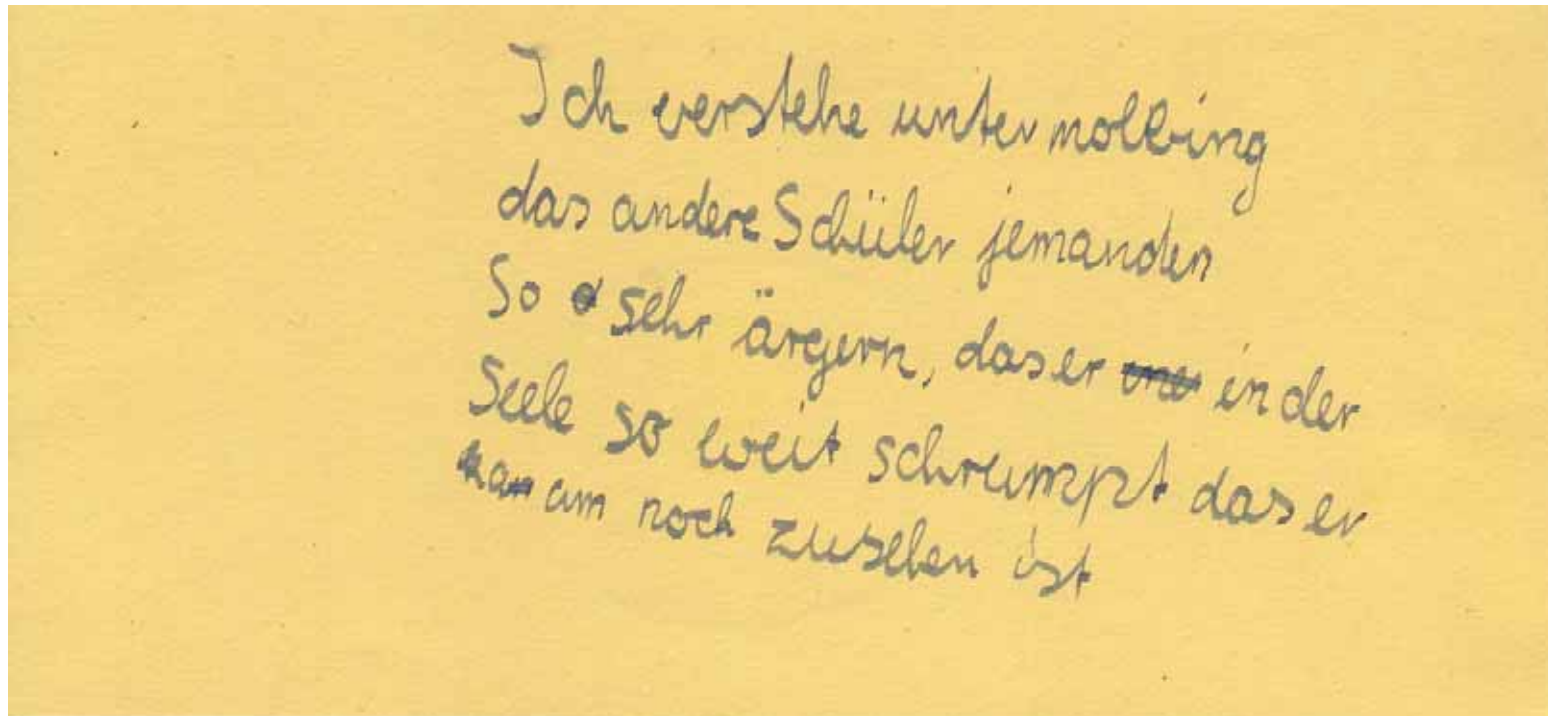 Ich verstehe unter molbing
das andere Schüler jemanden
So sehr ärgern, das er in der
Seele so weit schrumpt das er
kaum noch zusehen ist